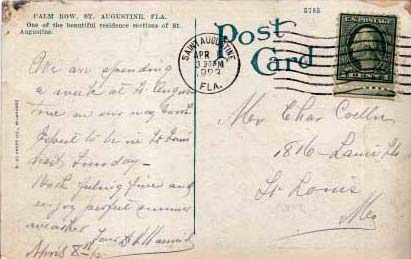 PALM ROW, ST. AUGUSTINE, FLA.
One of the beautiful residence sections of St. Augustine.
5785
Post Card
SAINT AUGUSTINE
APR
3 30 PM
FLA.
U.S. POSTAGE
We are spending
a week at St Augus
tine on our way North
Expect to be in St Louis
next Tuesday —
Both feeling fine and
enjoy perfect summer
weather
April 8th
Mrs Chas
1816
St Louis
Mo